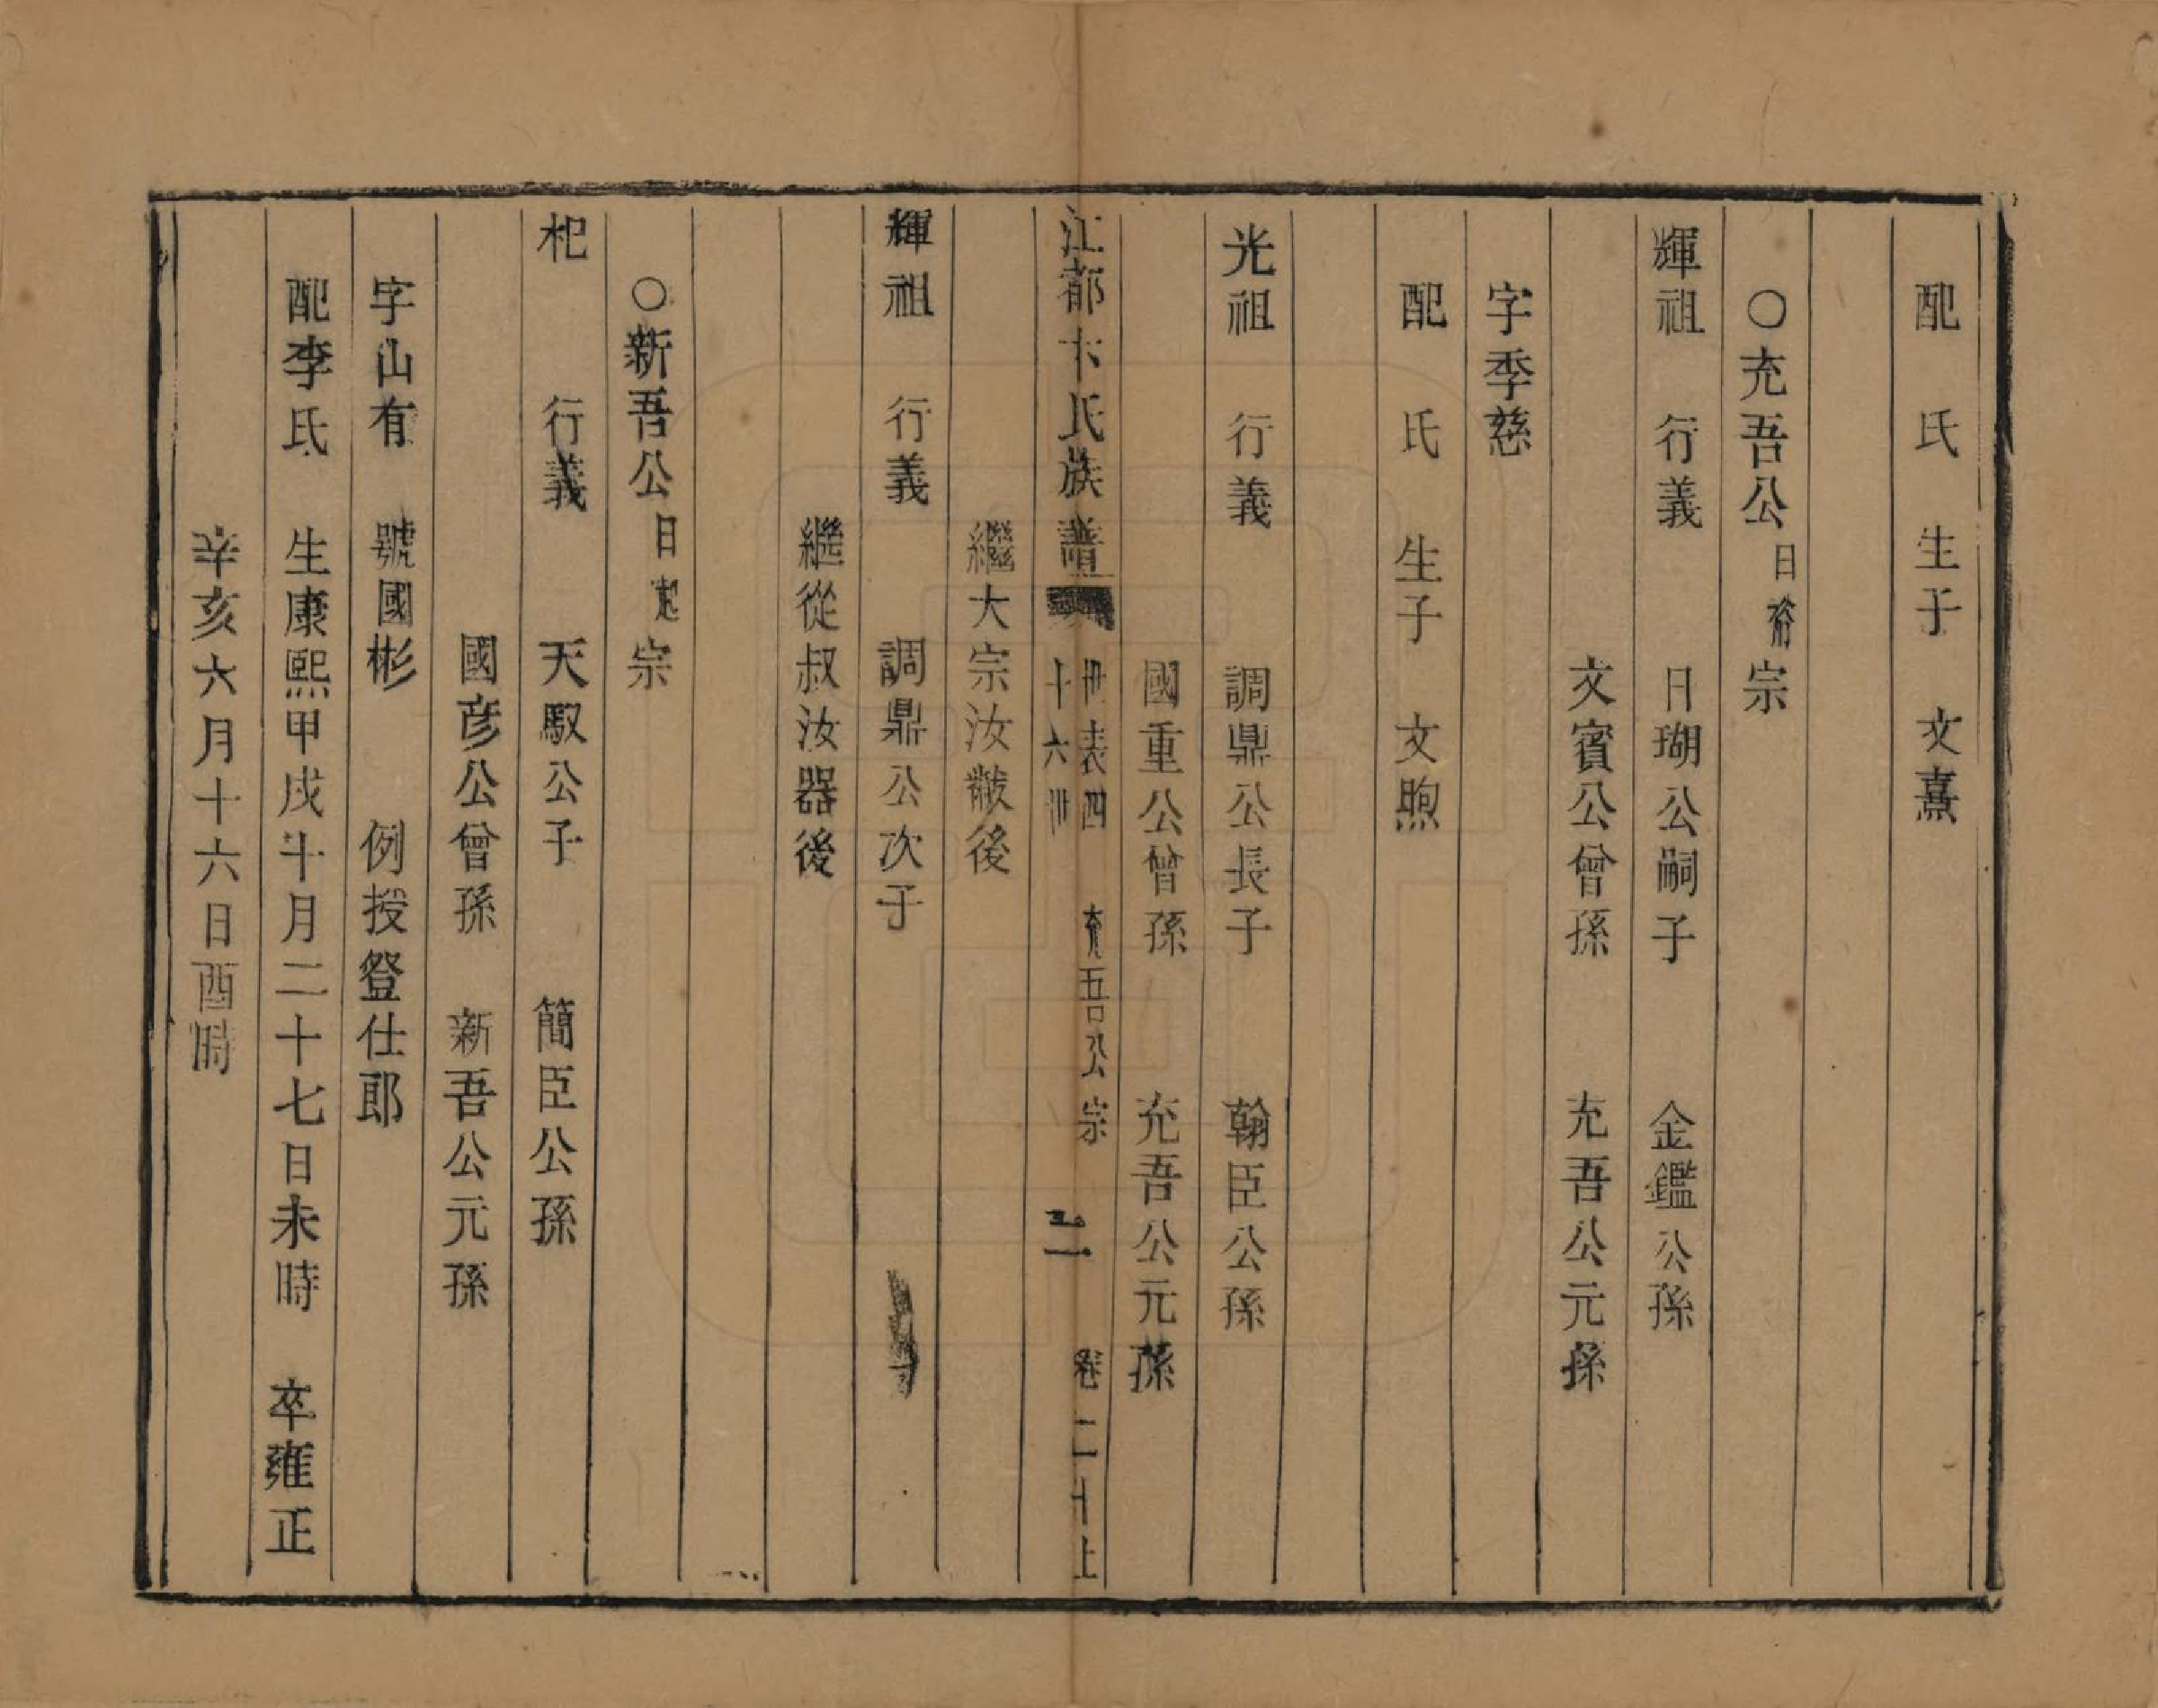 配　氏　生子　文熹
○充吾公日脊宗
輝祖　行義　日瑚公嗣子　金鑑公孫
文賓公曾孫　充吾公元孫
字季慈
配　氏　生子　文煦
光祖　行義　調鼎公長子　翰臣公孫
國重公曾孫　充吾公元孫
江都卞氏族譜　世表四　十六世　充吾公宗　卷二十上
繼大宗汝黻後
輝祖　行義　調鼎公次子
繼從叔汝器後
○新吾公日起宗
杞　行義　天馭公子　簡臣公孫
國彥公曾孫　新吾公元孫
字山有　號國彬　例授登仕郎
配李氏　生康熙甲戌十月二十七日未時　卒雍正
辛亥六月十六日酉時